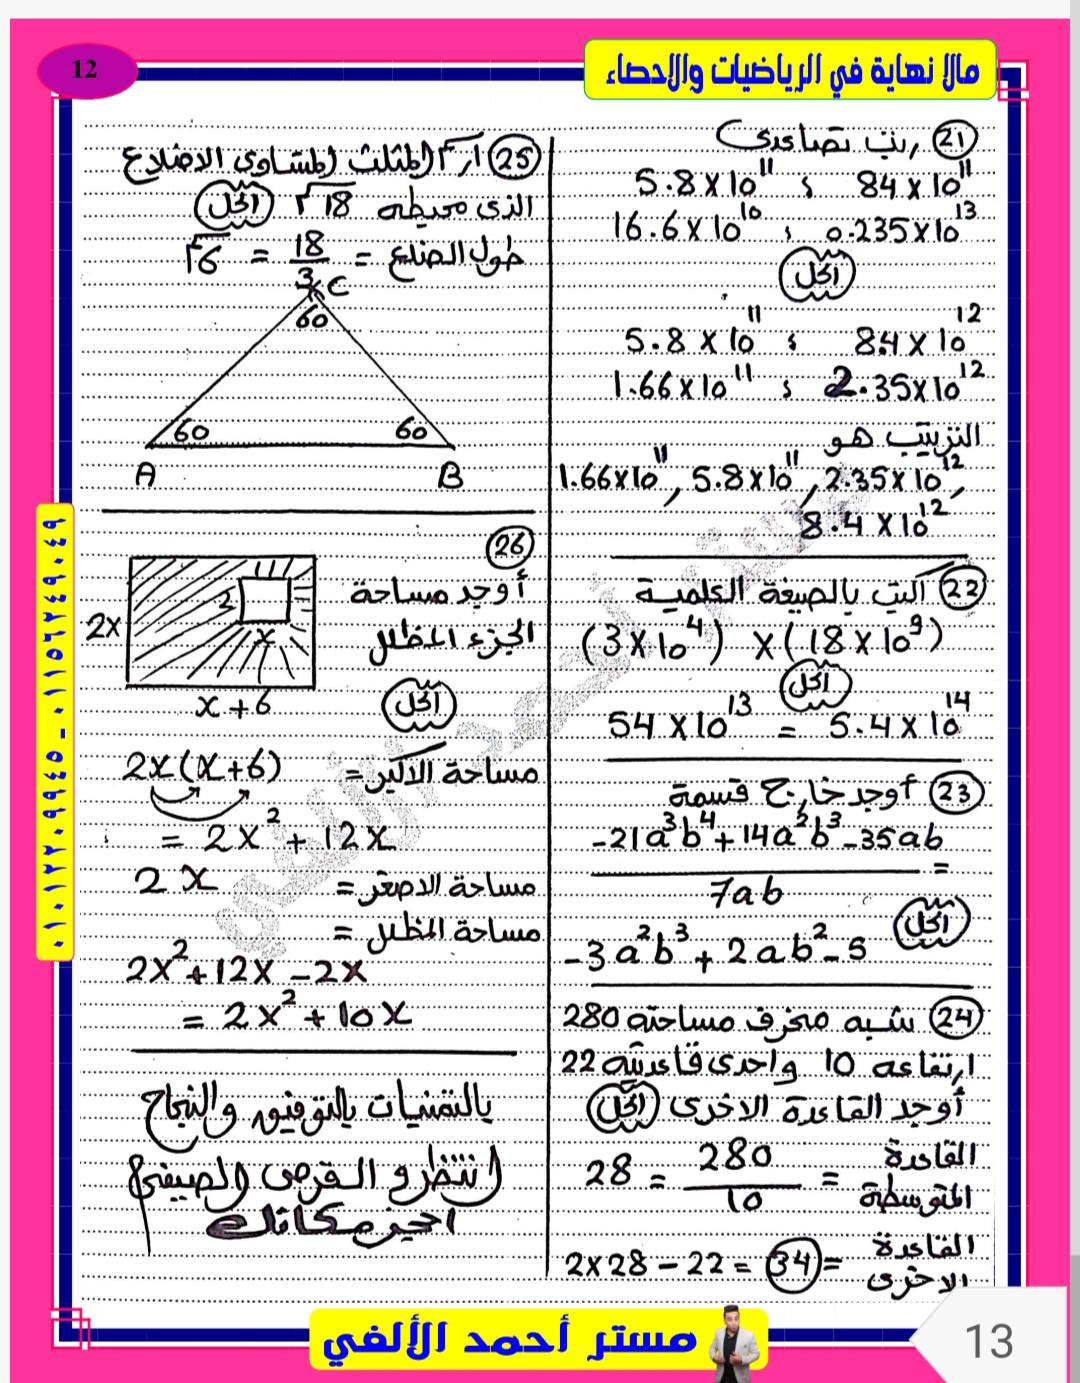 12
مالا نهاية في الرياضيات والاحصاء
21 رتب تصاعدى
5.8 × 10^11 ، 84 × 10^11
16.6 × 10^10 ، 0.235 × 10^13
الحل
5.8 × 10^11 ، 8.4 × 10^12
1.66 × 10^11 ، 2.35 × 10^12
الترتيب هو
1.66×10^11 , 5.8×10^11 , 2.35×10^12 ,
8.4 × 10^12
22 اكتب بالصيغة العلمية
(3 × 10^4) × (18 × 10^9)
الحل
54 × 10^13 = 5.4 × 10^14
23 أوجد خارج قسمة
-21a^3b^4 + 14a^2b^3 - 35ab
=
7ab
الحل
-3a^2b^3 + 2ab^2 - 5
24 شبه منحرف مساحته 280
ارتفاعه 10 واحدى قاعدتيه 22
أوجد القاعدة الاخرى الحل
القاعدة المتوسطة = 280/10 = 28
القاعدة الاخرى = 34 = 2×28 - 22
25 ارسم المثلث المتساوى الاضلاع
الذى محيطه 18 الحل
طول الضلع = 18/3 = 6
C
60
60 60
A B
26
أوجد مساحة
الجزء المظلل
2
2x
x
x+6
الحل
مساحة الأكبر = 2x(x+6)
= 2x^2 + 12x
مساحة الاصغر = 2x
مساحة المظلل =
2x^2 + 12x - 2x
= 2x^2 + 10x
بالتمنيات بالتوفيق والنجاح
انتظرو العرض الصيفى
احجز مكانك
٠١٠١٢٢٠٩٩٤٥ - ٠١١٥٦٢٤٩٠٤٩
مستر أحمد الألفي
مستر أحمد الألفي
13